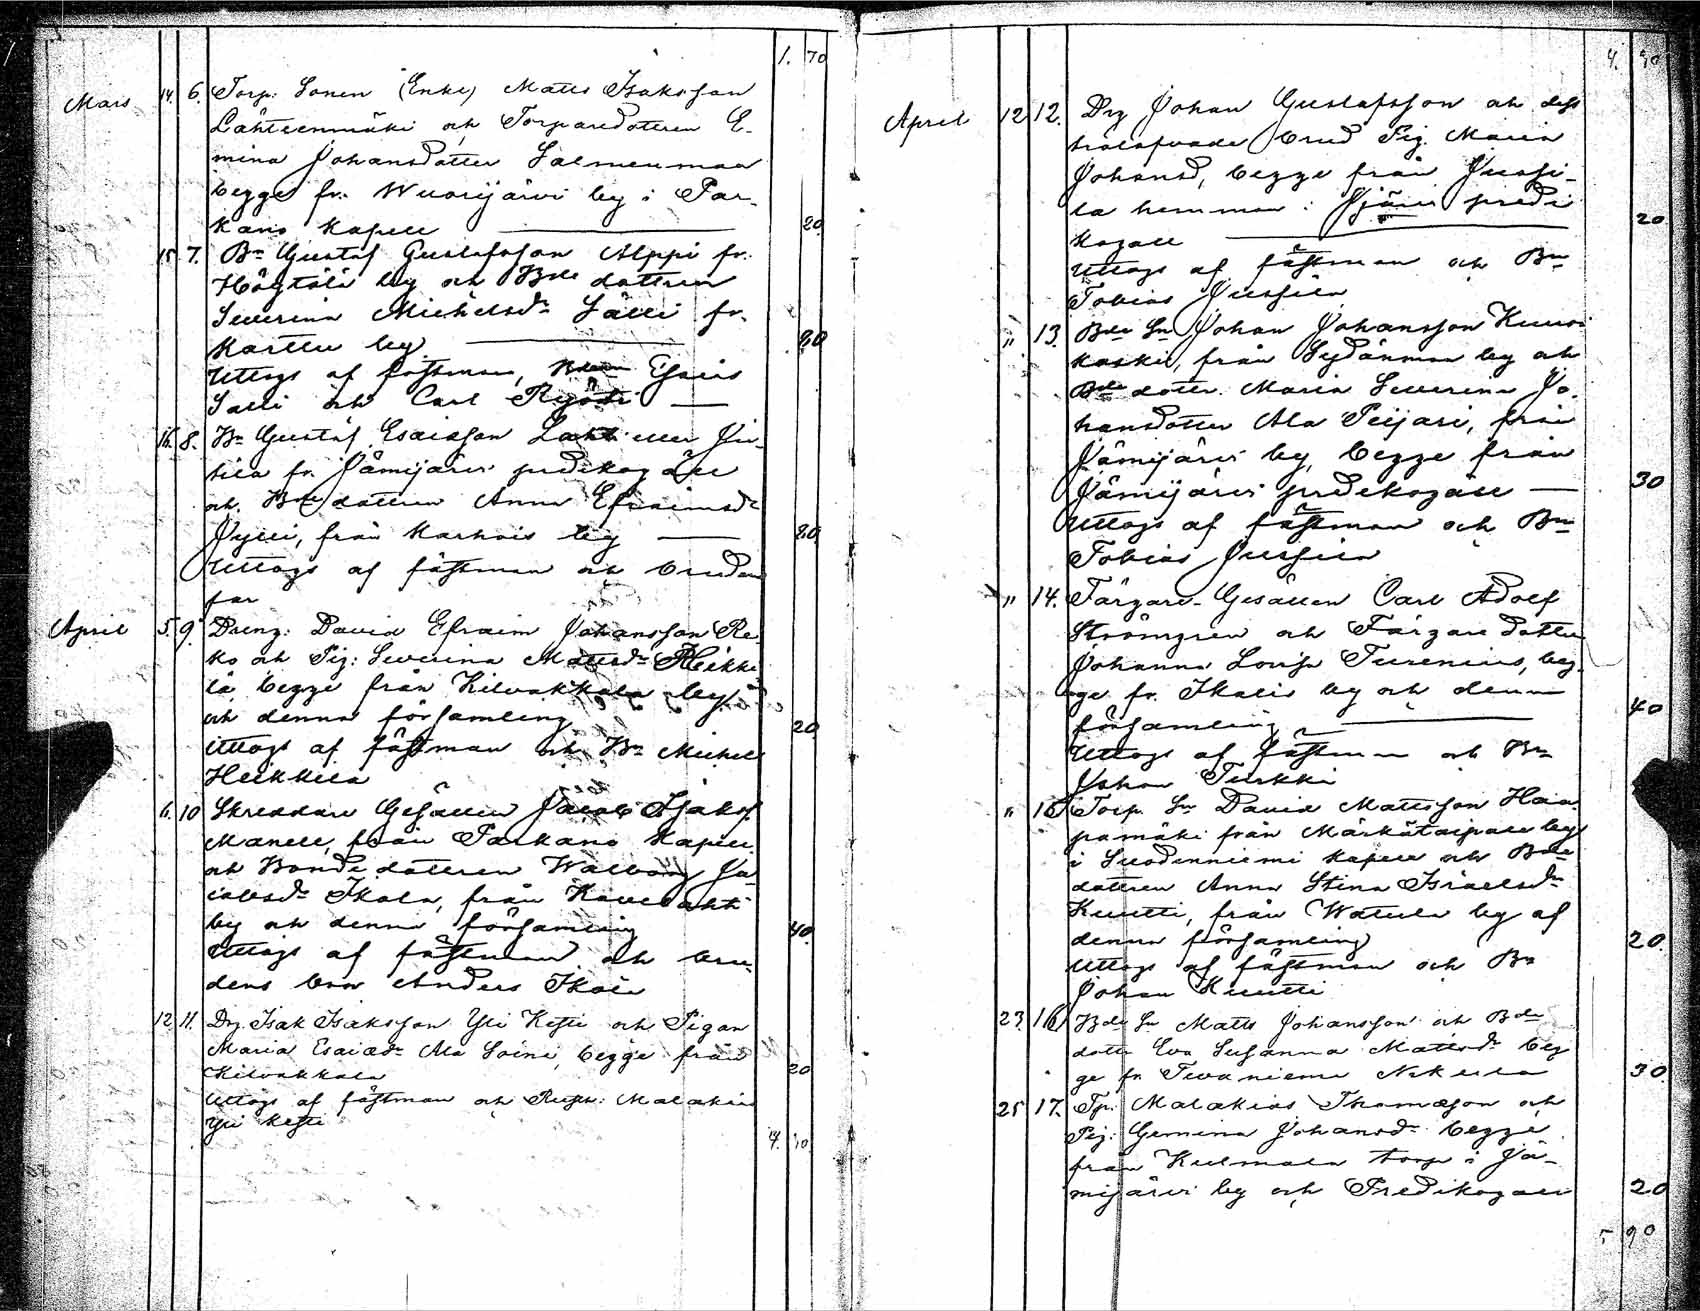 1. 70
Mars 14. 6. Torp: Sonen (Enkl) Matts Isaksson
Lähteenmäki och Torparedottren E-
mina Johansdotter Salmenmaa
begge fr. Wuorijärvi by i Par-
kano Kapell 20
15 7. Bn Gustaf Gustafsson Alppi fr.
Högtälä by och Bde dottren
Severina Michelsdr Sälli fr.
Karttu by 80
Uttogs af fästman, Esaias
Salli och Carl
16. 8. Bn Gustaf Esaiasson Lahti eller
fr. Jämijärvi predikogäll
och Bde dottren Anna Efraimsdr
Jylli, från Karhois by 80
Uttogs af fästman och brudens
far
April 5. 9. Dreng: David Efraim Johansson Re-
ko och Pig: Severina Mattsdr Heikki-
lä begge från Kilvakkala by
och denna församling 20
Uttogs af fästman och Bn Michel
Heikkilä
6. 10 Skreddare Gesällen Jacob Isaksf
Manell, från Parkano Kapell
och Bonde dottren Walborg Ja-
cobsdr Ikola, från Kovelahti
by och denna församling 40.
Uttogs af fästman och bru-
dens bror Anders Ikola
12. 11. Drg. Isak Isaksson Yli Kesti och Pigan
Maria Esaiædr Ala Soini, begge från
Kilvakkala 20
Uttogs af fästman och Malakias
Yli Kesti
4. 10
4. 10
April 12 12. Drg Johan Gustafsson och dess
trolofvade brud Pig. Maria
Johansd, begge från Jussi-
la hemman i predi 20
kogäll
Uttogs af fästman och Bn
Tobias Jussila
" 13. Bde Sn Johan Johansson Kuusi
koski, från Sydänmaa by och
Bde dotter. Maria Severina Jo-
hansdotter Ala Peijari, från
Jämijärvi by, begge från
Jämijärvi predikogäll 30
Uttogs af fästman och Bn
Tobias Jussila
" 14. Färgare-Gesällen Carl Adolf
Strömgren och Färgare dotter
Johanna Lovisa Turenius, beg-
ge fr. Ikalis by och denna
församling 40
Uttogs af fästman och Bn
Johan Turkki
" 15 Torp. Sn David Mattsson Haa-
pamäki från Märkätaipale by
i Suodenniemi kapell och Bde
dottren Anna Stina Israelsdr
Kuutti, från Watula by af
denna församling 20.
Uttogs af fästman och Bn
Johan Kuutti
23. 16. Bde Sn Matts Johansson och Bde
dottr Eva Susanna Mattsdr beg
ge fr Tevaniemi Nekkilä 30
25 17. Tp: Malakias Thomæson och
Pig: Gemina Johansdr begge
från Kulmala torp i Jä-
mijärvi by och Predikogäll 20
5 90